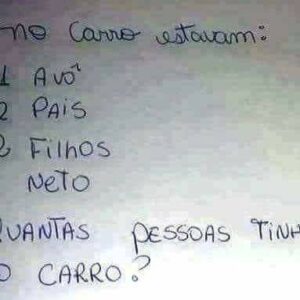 no carro estavam:
1 Avô
2 PAIS
2 Filhos
NeTO
QUANTAS PESSOAS TINH
O CARRO?